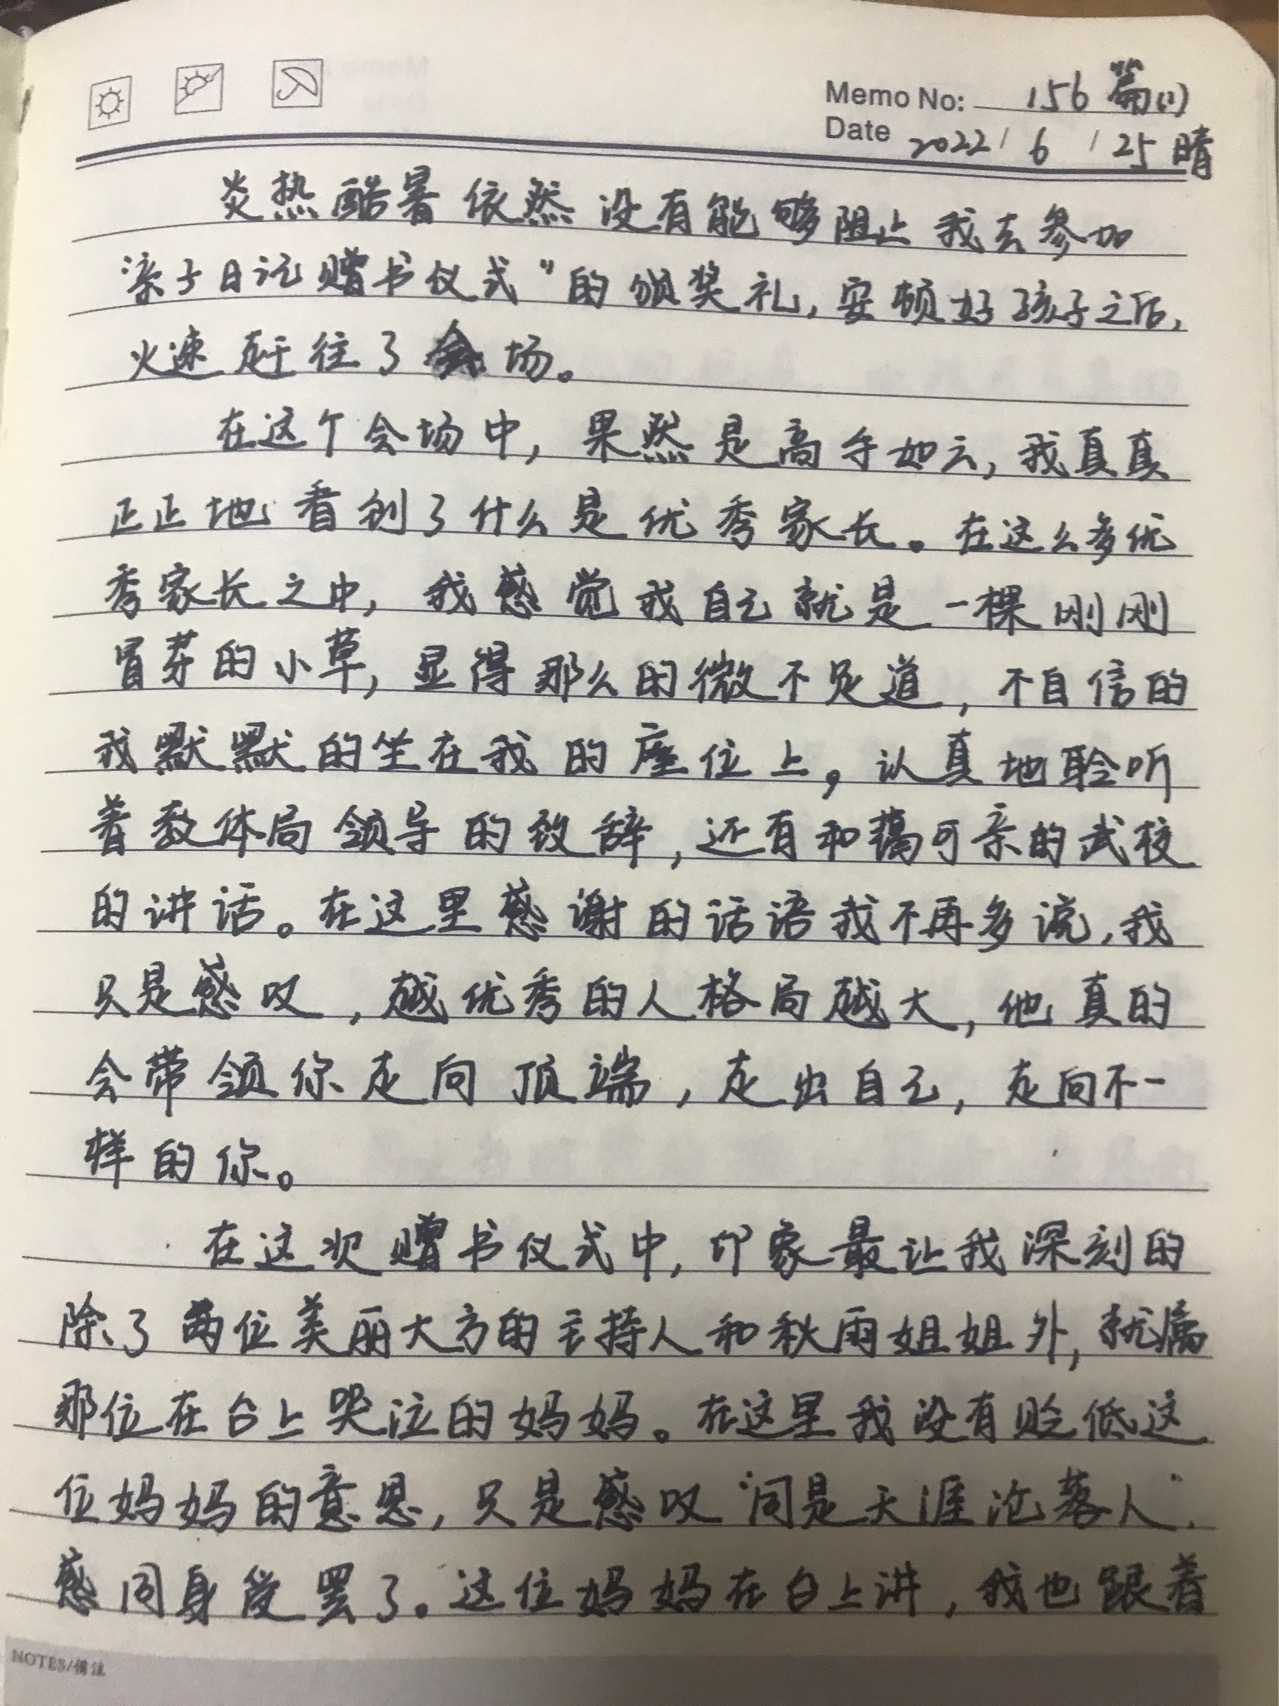 Memo No: 156篇(1)
Date 2022/6/25晴
炎热酷暑依然没有能够阻止我去参加
亲子日记赠书仪式”的颁奖礼,安顿好孩子之后,
火速赶往了会场。
在这个会场中,果然是高手如云,我真真
正正地看到了什么是优秀家长。在这么多优
秀家长之中,我感觉我自己就是一棵刚刚
冒芽的小草,显得那么的微不足道,不自信的
我默默的坐在我的座位上,认真地聆听
着教体局领导的致辞,还有和蔼可亲的武校
的讲话。在这里感谢的话语我不再多说,我
只是感叹,越优秀的人格局越大,他真的
会带领你走向顶端,走出自己,走向不一
样的你。
在这次赠书仪式中,印象最让我深刻的
除了两位美丽大方的主持人和秋雨姐姐外,就属
那位在台上哭泣的妈妈。在这里我没有贬低这
位妈妈的意思,只是感叹“同是天涯沦落人”,
感同身受罢了。这位妈妈在台上讲,我也跟着
NOTES/备注